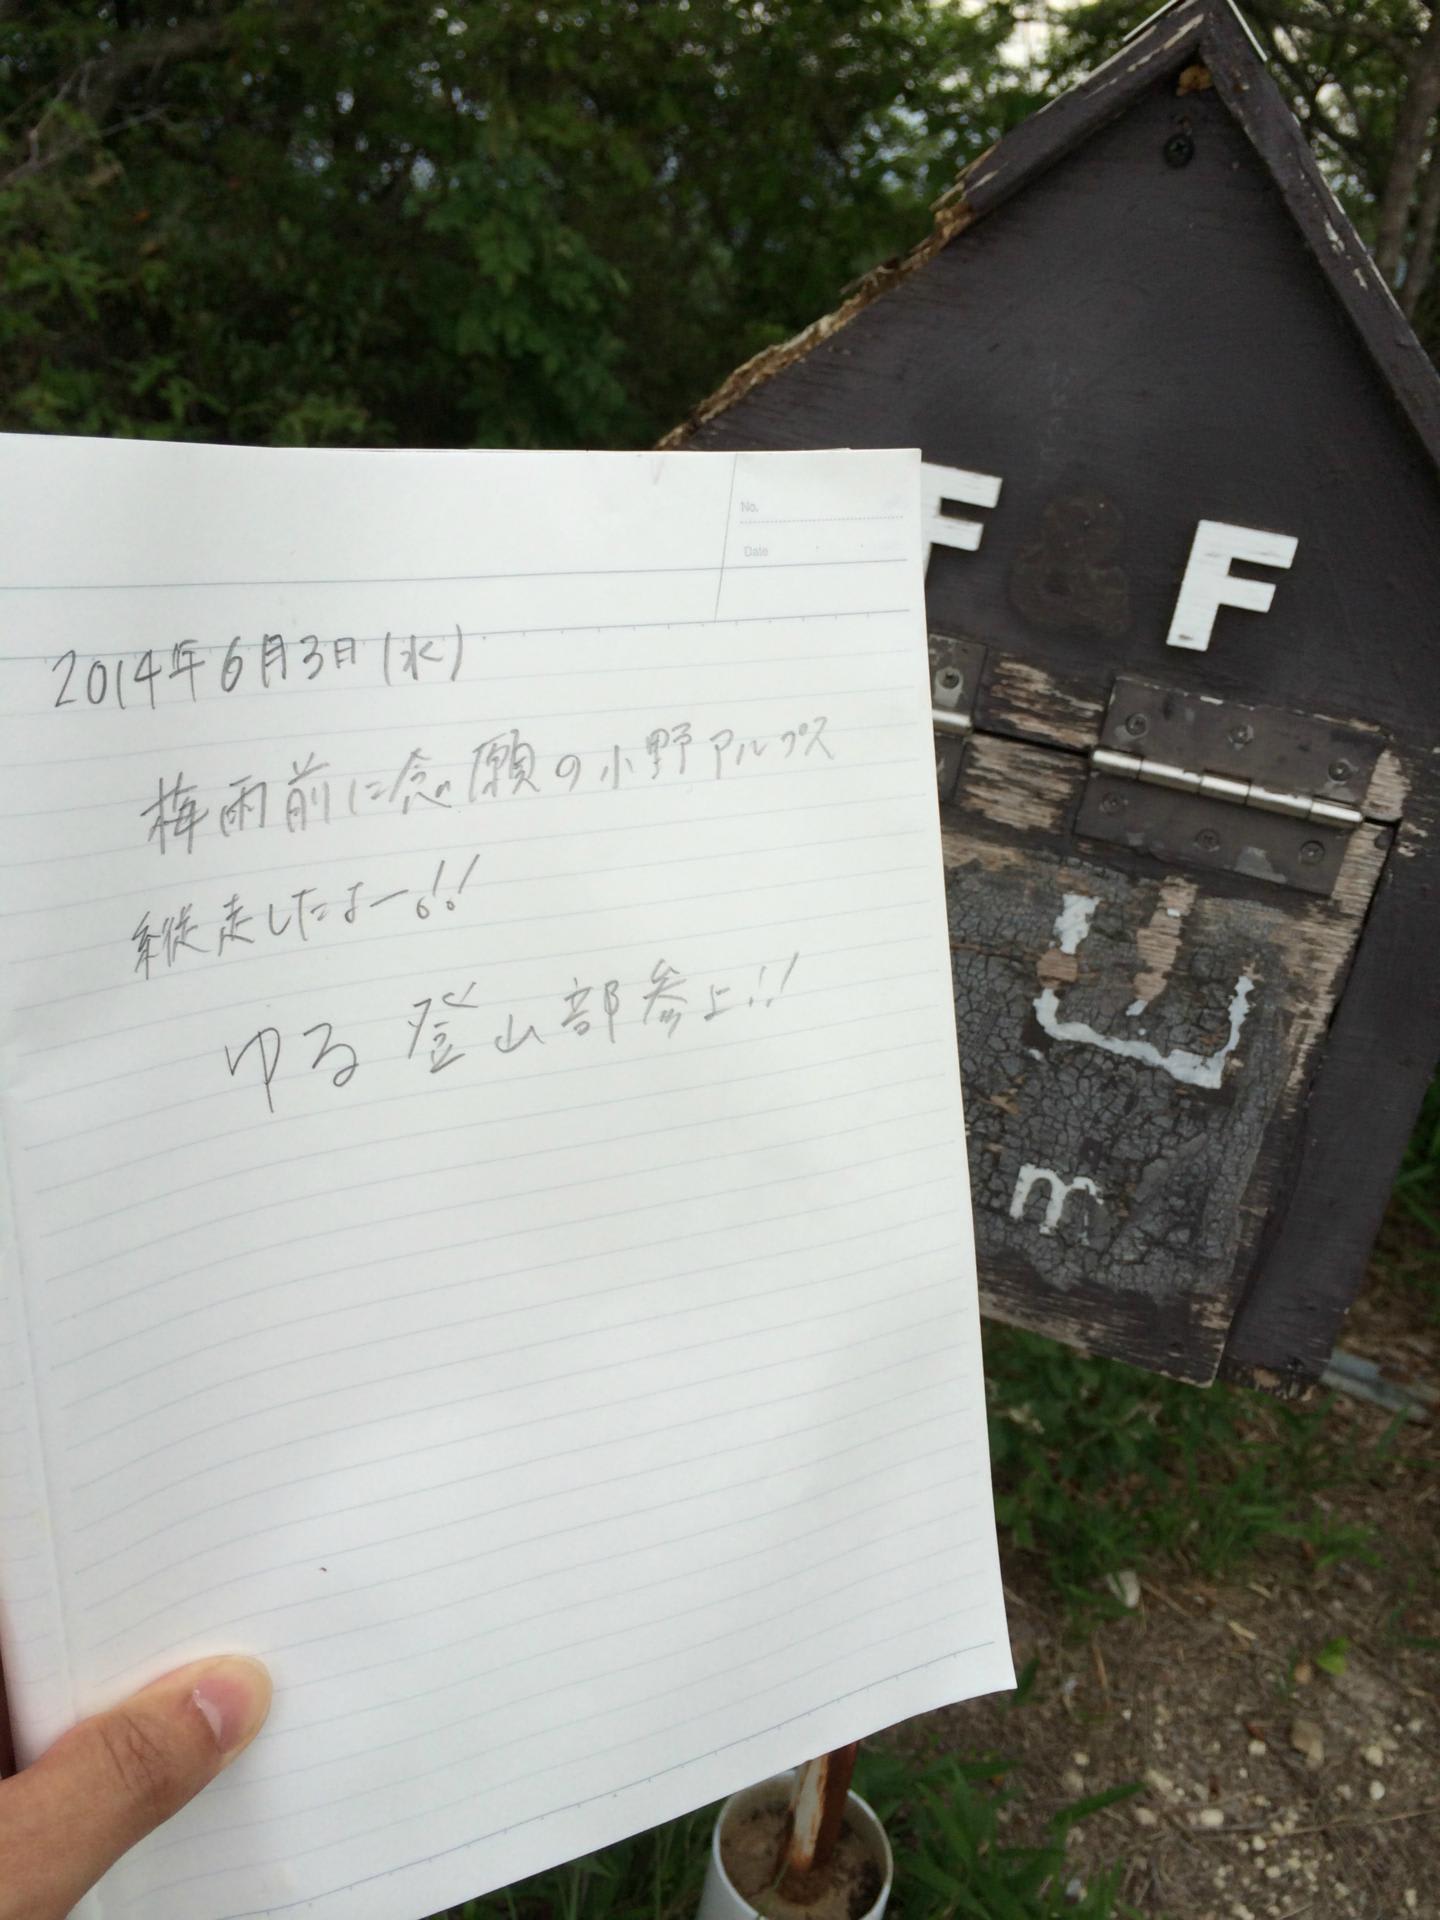 No.
Date
2014年6月3日(水)
梅雨前に念願の小野アルプス
縦走したよー!!
ゆる登山部参上!!
F F
山
m